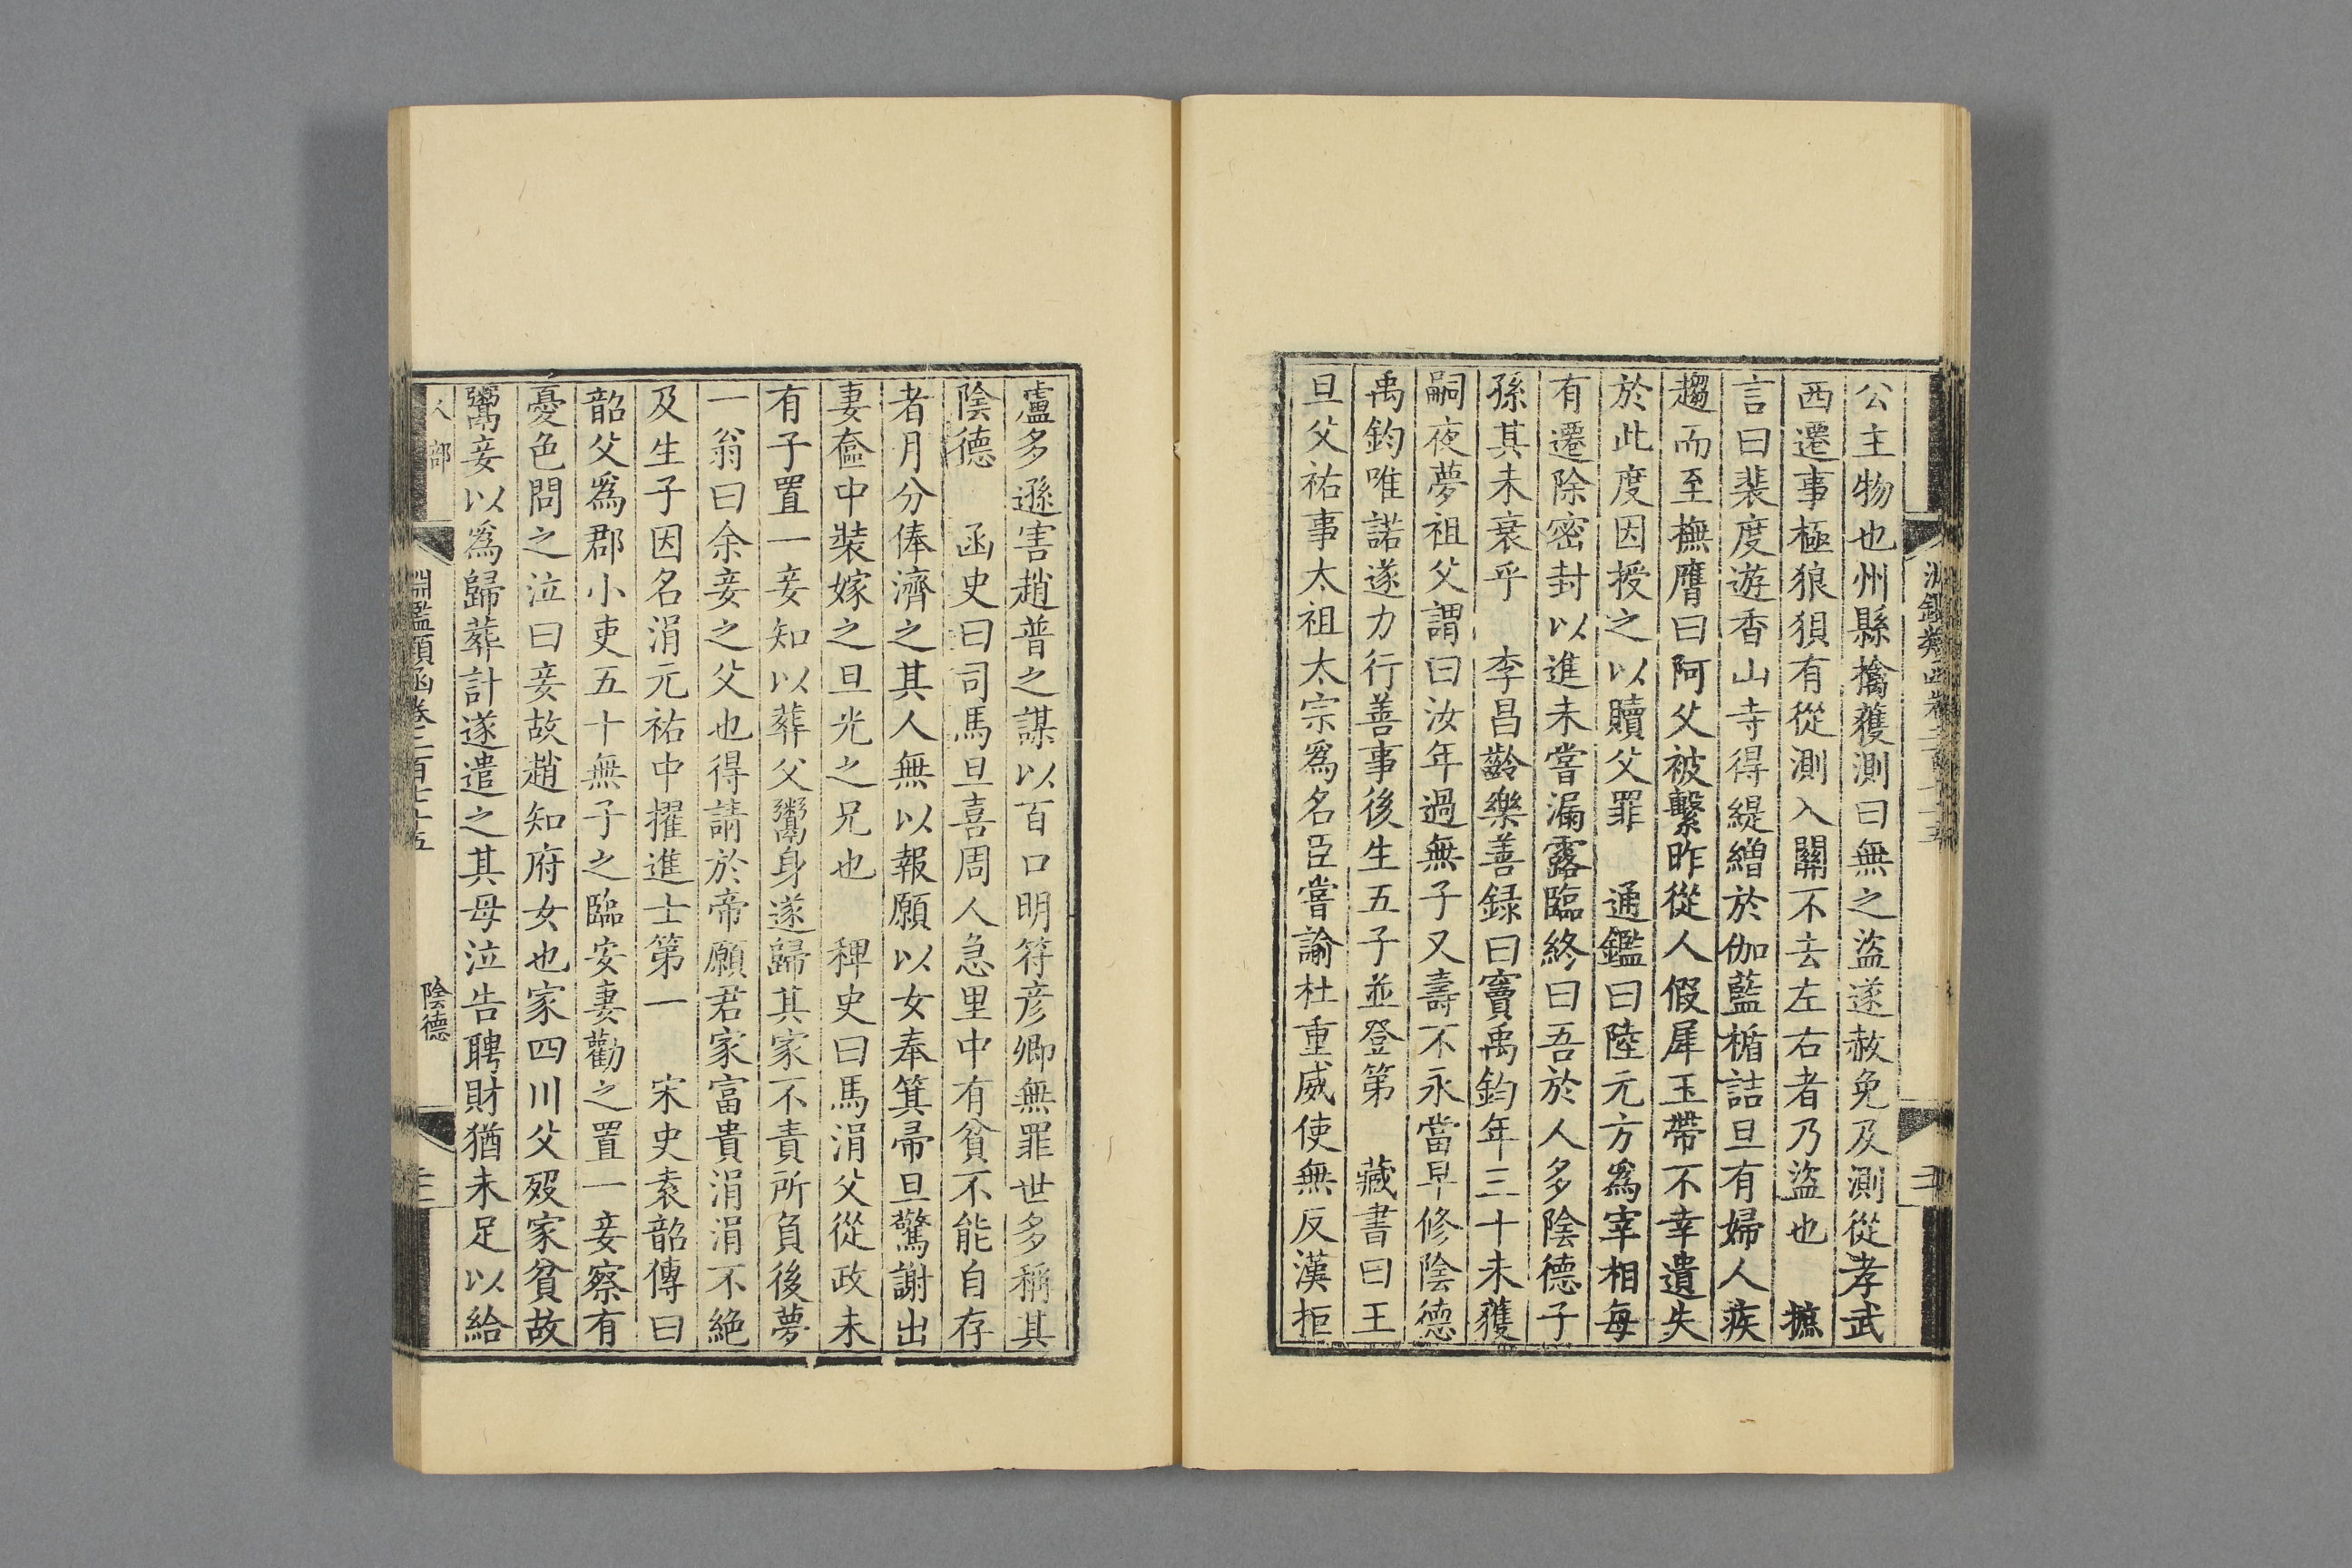 公主物也州縣擒獲測曰無之盜遂赦免及測從孝武
西遷事極狼狽有從測入關不去左右者乃盜也　摭
言曰裴度遊香山寺得緹繒於伽藍楯詰旦有婦人疾
趨而至撫膺曰阿父被繫昨從人假犀玉帶不幸遺失
於此度因授之以贖父罪　通鑑曰陸元方為宰相每
有遷除密封以進未嘗漏露臨終曰吾於人多陰德子
孫其未衰乎　李昌齡樂善録曰竇禹鈞年三十未獲
嗣夜夢祖父謂曰汝年過無子又壽不永當早修陰德
禹鈞唯諾遂力行善事後生五子並登第　藏書曰王
旦父祐事太祖太宗為名臣嘗諭杜重威使無反漢拒
盧多遜害趙普之謀以百口明符彦卿無罪世多稱其
陰德　函史曰司馬旦喜周人急里中有貧不能自存
者月分俸濟之其人無以報願以女奉箕帚旦驚謝出
妻奩中裝嫁之旦光之兄也　稗史曰馬涓父從政未
有子置一妾知以葬父鬻身遂歸其家不責所負後夢
一翁曰余妾之父也得請於帝願君家富貴涓涓不絕
及生子因名涓元祐中擢進士第一　宋史袁韶傳曰
韶父為郡小吏五十無子之臨安妻勸之置一妾察有
憂色問之泣曰妾故趙知府女也家四川父歿家貧故
鬻妾以為歸葬計遂遣之其母泣告聘財猶未足以給
人部
淵鑑類函卷二百七十五
陰德